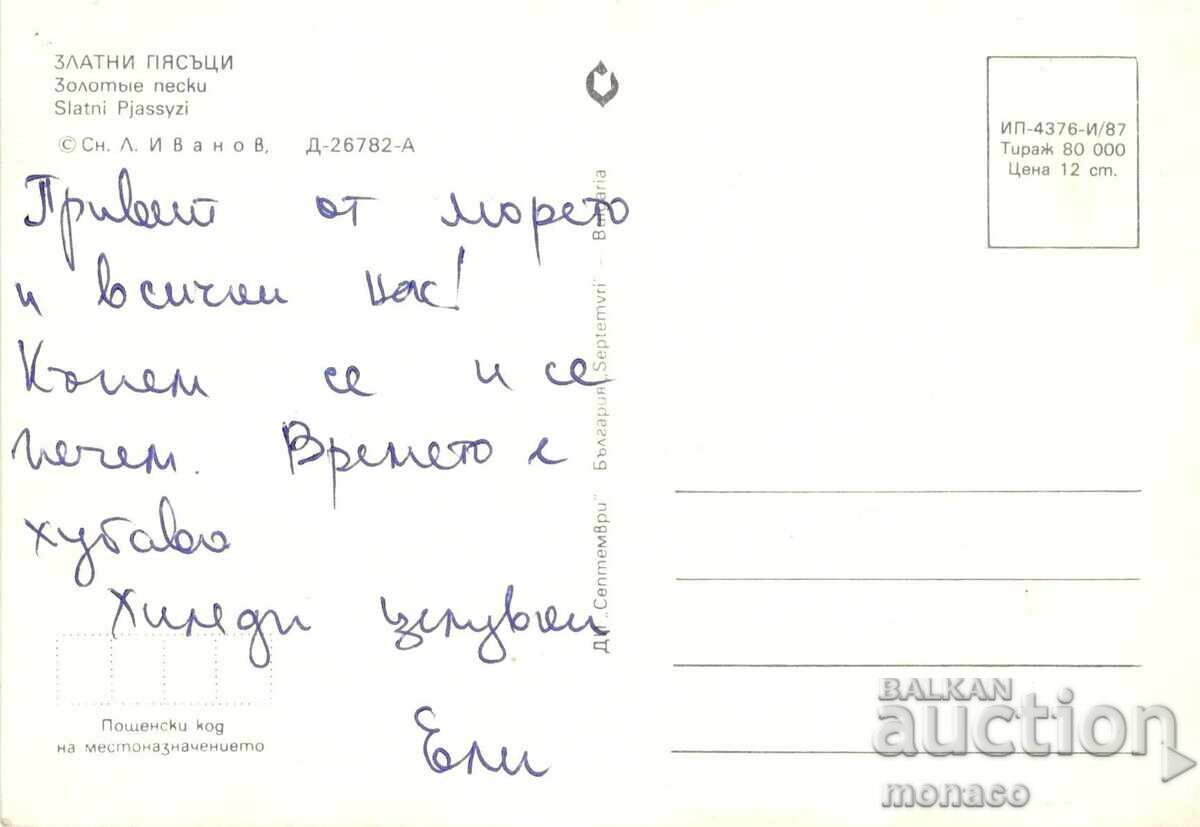 ЗЛАТНИ ПЯСЪЦИ
Золотые пески
Slatni Pjassyzi
© Сн. Л. Иванов, Д-26782-А
Привет от морето
и всички нас!
Къпем се и се
печем. Времето е
хубаво
Хиляди целувки
Ели
Пощенски код
на местоназначението
ДП „Септември" България „Septemvri" – Bulgaria
ИП-4376-И/87
Тираж 80 000
Цена 12 ст.
BALKAN
auction
monaco